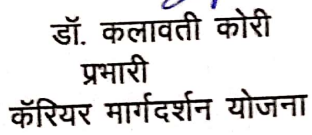 डॉ. कलावती कोरी
प्रभारी
कॅरियर मार्गदर्शन योजना